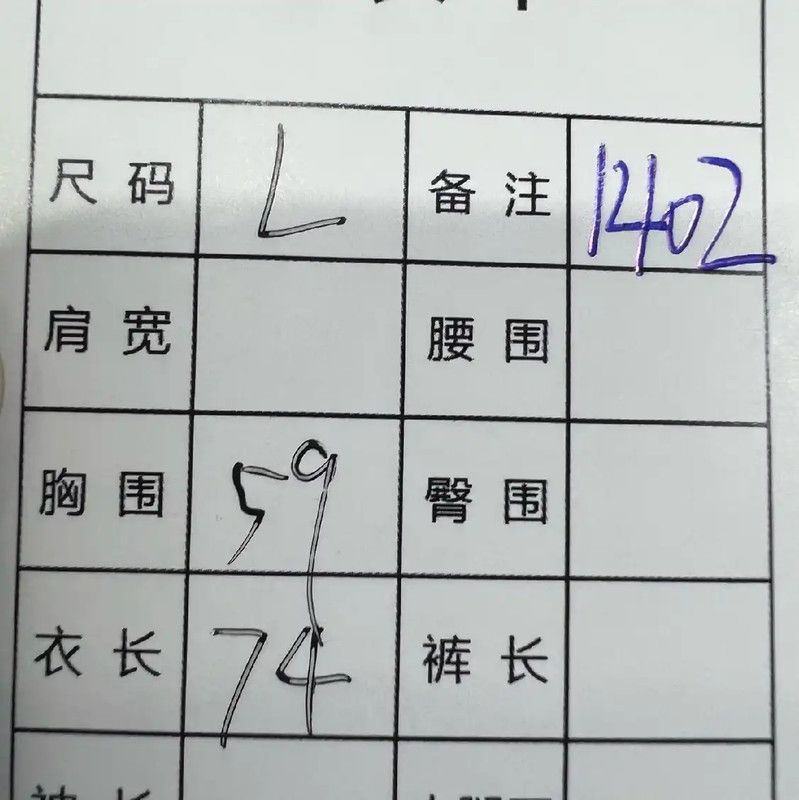 尺码 L 备注 1402
肩宽 腰围
胸围 59 臀围
衣长 74 裤长